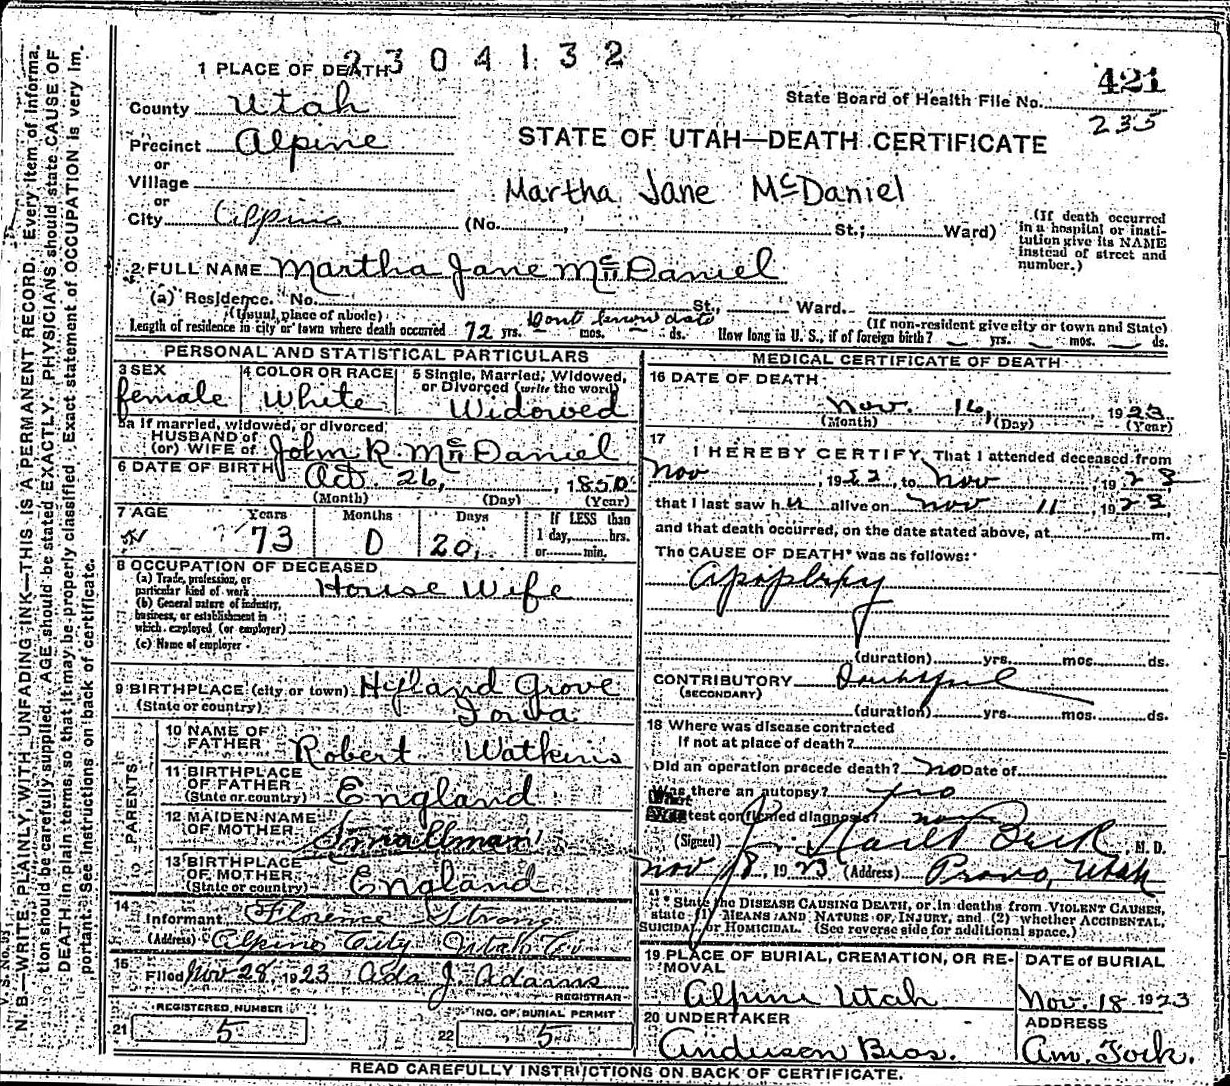 2304132
1 PLACE OF DEATH
421
County Utah
State Board of Health File No.
235
Precinct Alpine
STATE OF UTAH—DEATH CERTIFICATE
or
Village
Martha Jane McDaniel
or
City Alpine (No. , St.; Ward)
(If death occurred in a hospital or institution give its NAME instead of street and number.)
2 FULL NAME Martha Jane McDaniel
(a) Residence. No. St., Ward.
(Usual place of abode) (If non-resident give city or town and State)
Length of residence in city or town where death occurred 72 yrs. mos. ds. How long in U. S., if of foreign birth? yrs. mos. ds.
Dont know date
PERSONAL AND STATISTICAL PARTICULARS
3 SEX 4 COLOR OR RACE 5 Single, Married, Widowed, or Divorced (write the word)
female White Widowed
5a If married, widowed, or divorced
HUSBAND of
(or) WIFE of John R. McDaniel
6 DATE OF BIRTH Oct. 26, 1850
(Month) (Day) (Year)
7 AGE Years Months Days If LESS than
73 0 20 1 day, hrs.
or min.
8 OCCUPATION OF DECEASED
(a) Trade, profession, or particular kind of work House Wife
(b) General nature of industry, business, or establishment in which employed (or employer)
(c) Name of employer
9 BIRTHPLACE (city or town) Hyland Grove
(State or country) Iowa
PARENTS
10 NAME OF FATHER Robert Watkins
11 BIRTHPLACE OF FATHER (State or country) England
12 MAIDEN NAME OF MOTHER Smallman
13 BIRTHPLACE OF MOTHER (State or country) England
14 Informant Florence Strong
(Address) Alpine City Utah Co
15 Filed Nov 28, 1923 Ada J. Adams
REGISTRAR
REGISTERED NUMBER NO. OF BURIAL PERMIT
21 5 22 5
MEDICAL CERTIFICATE OF DEATH
16 DATE OF DEATH
Nov. 16, 1923
(Month) (Day) (Year)
17 I HEREBY CERTIFY, That I attended deceased from
Nov , 1922, to Nov 1923
that I last saw her alive on Nov 11 1923
and that death occurred, on the date stated above, at m.
The CAUSE OF DEATH* was as follows:
Apoplexy
(duration) yrs. mos. ds.
CONTRIBUTORY
(SECONDARY)
(duration) yrs. mos. ds.
18 Where was disease contracted
If not at place of death?
Did an operation precede death? no Date of
Was there an autopsy? no
What test confirmed diagnosis? none
(Signed) J. Beck, M. D.
Nov 18, 1923 (Address) Provo, Utah
* State the DISEASE CAUSING DEATH, or in deaths from VIOLENT CAUSES, state (1) MEANS AND NATURE OF INJURY, and (2) whether ACCIDENTAL, SUICIDAL, or HOMICIDAL. (See reverse side for additional space.)
19 PLACE OF BURIAL, CREMATION, OR REMOVAL DATE OF BURIAL
Alpine Utah Nov. 18 1923
20 UNDERTAKER ADDRESS
Anderson Bros. Am. Fork.
READ CAREFULLY INSTRUCTIONS ON BACK OF CERTIFICATE.
V. S. No.
N. B.—WRITE PLAINLY, WITH UNFADING INK—THIS IS A PERMANENT RECORD. Every item of information should be carefully supplied. AGE should be stated EXACTLY. PHYSICIANS should state CAUSE OF DEATH in plain terms, so that it may be properly classified. Exact statement of OCCUPATION is very important. See instructions on back of certificate.